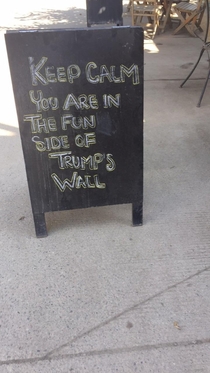 KEEP CALM
YOU ARE IN
THE FUN
SIDE OF
TRUMP'S
WALL